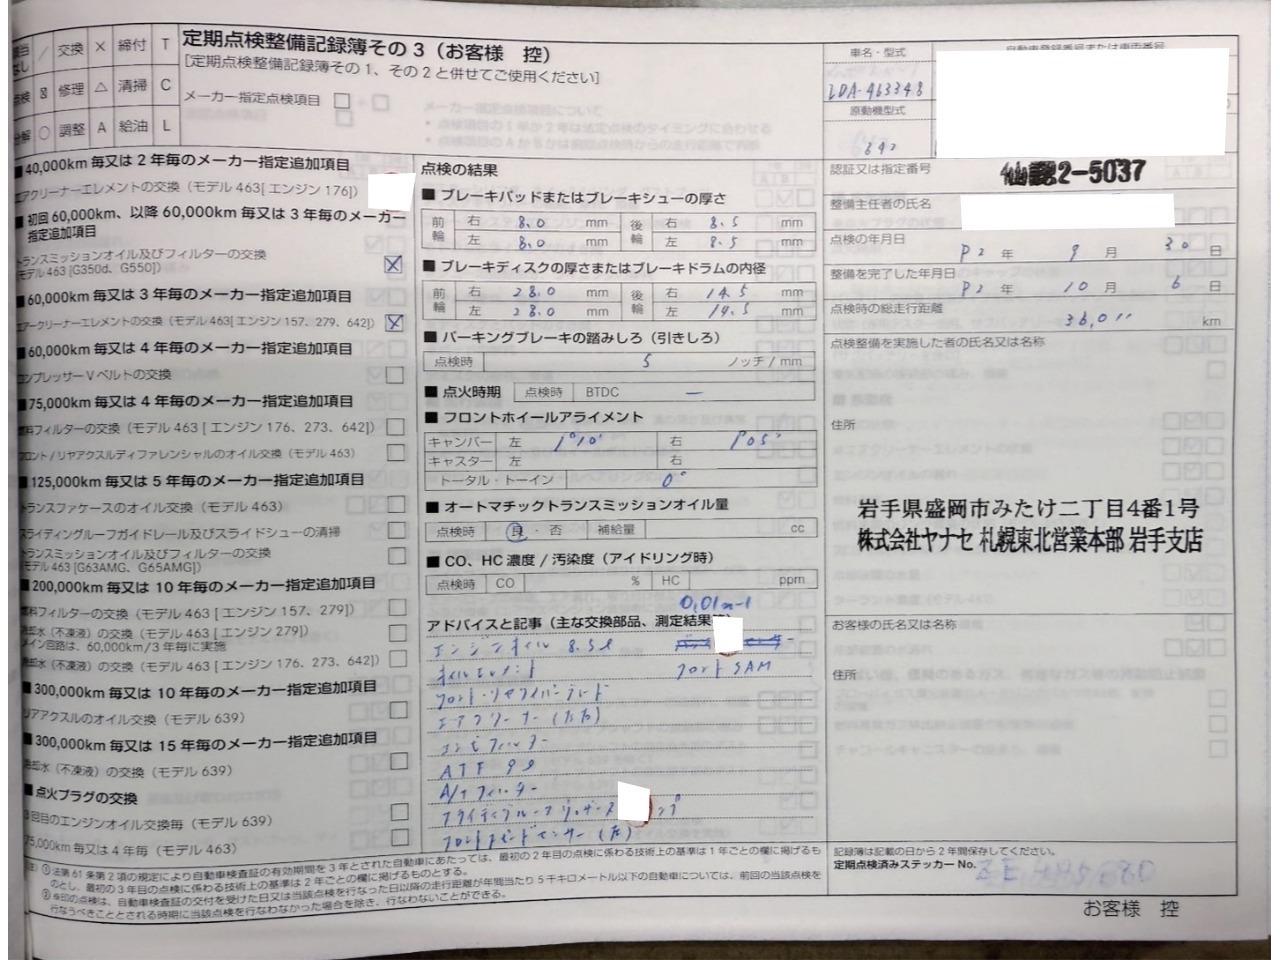 定期点検整備記録簿その3（お客様 控）
[定期点検整備記録簿その1、その2と併せてご使用ください]
メーカー指定点検項目
／ 交換 × 締付 T
修理 △ 清掃 C
○ 調整 A 給油 L
■ 40,000km 毎又は 2 年毎のメーカー指定追加項目
エアクリーナーエレメントの交換（モデル 463[ エンジン 176]）
■ 初回 60,000km、以降 60,000km 毎又は 3 年毎のメーカー
指定追加項目
トランスミッションオイル及びフィルターの交換
（モデル 463 [G350d、G550]）
■ 60,000km 毎又は 3 年毎のメーカー指定追加項目
エアークリーナーエレメントの交換（モデル 463[ エンジン 157、279、642]）
■ 60,000km 毎又は 4 年毎のメーカー指定追加項目
コンプレッサー V ベルトの交換
■ 75,000km 毎又は 4 年毎のメーカー指定追加項目
燃料フィルターの交換（モデル 463 [ エンジン 176、273、642]）
フロント / リヤアクスルディファレンシャルのオイル交換（モデル 463）
■ 125,000km 毎又は 5 年毎のメーカー指定追加項目
トランスファケースのオイル交換（モデル 463）
スライディングルーフガイドレール及びスライドシューの清掃
トランスミッションオイル及びフィルターの交換
（モデル 463 [G63AMG、G65AMG]）
■ 200,000km 毎又は 10 年毎のメーカー指定追加項目
燃料フィルターの交換（モデル 463 [ エンジン 157、279]）
冷却水（不凍液）の交換（モデル 463 [ エンジン 279]）
メイン回路は、60,000km/3 年毎に実施
冷却水（不凍液）の交換（モデル 463 [ エンジン 176、273、642]）
■ 300,000km 毎又は 10 年毎のメーカー指定追加項目
リアアクスルのオイル交換（モデル 639）
■ 300,000km 毎又は 15 年毎のメーカー指定追加項目
冷却水（不凍液）の交換（モデル 639）
■ 点火プラグの交換
3 回目のエンジンオイル交換毎（モデル 639）
75,000km 毎又は 4 年毎（モデル 463）
点検の結果
■ ブレーキパッドまたはブレーキシューの厚さ
前輪 右 8.0 mm 後輪 右 8.5 mm
左 8.0 mm 左 8.5 mm
■ ブレーキディスクの厚さまたはブレーキドラムの内径
前輪 右 28.0 mm 後輪 右 14.5 mm
左 28.0 mm 左 14.5 mm
■ パーキングブレーキの踏みしろ（引きしろ）
点検時 5 ノッチ / mm
■ 点火時期 点検時 BTDC —
■ フロントホイールアライメント
キャンバー 左 1°10' 右 1°05'
キャスター 左 右
トータル・トーイン 0°
■ オートマチックトランスミッションオイル量
点検時 良 ・ 否 補給量 cc
■ CO、HC 濃度 / 汚染度（アイドリング時）
点検時 CO % HC ppm
0.01m-1
アドバイスと記事（主な交換部品、測定結果
エンジンオイル 8.5ℓ
オイルエレメント フロント SAM
フロント・リヤワイパーブレード
エアクリーナー（左右）
エンビフィルター
ATF 9ℓ
A/Tフィルター
フロントスピードセンサー（左）
車名・型式
LDA-463348
原動機型式
642
自動車登録番号または車両番号
認証又は指定番号 仙認2-5037
整備主任者の氏名
点検の年月日 R2 年 9 月 30 日
整備を完了した年月日 R2 年 10 月 6 日
点検時の総走行距離 36,011 km
点検整備を実施した者の氏名又は名称
住所
岩手県盛岡市みたけ二丁目4番1号
株式会社ヤナセ 札幌東北営業本部 岩手支店
お客様の氏名又は名称
住所
記録簿は記載の日から 2 年間保存してください。
定期点検済みステッカー No.
注）①法第 61 条第 2 項の規定により自動車検査証の有効期間を 3 年とされた自動車にあたっては、最初の 2 年目の点検に係わる技術上の基準は 1 年ごとの欄に掲げるもの
とし、最初の 3 年目の点検に係わる技術上の基準は 2 年ごとの欄に掲げるものとする。
②※印の点検は、自動車検査証の交付を受けた日又は当該点検を行なった日以降の走行距離が年間当たり 5 千キロメートル以下の自動車については、前回の当該点検を
行なうべきこととされる時期に当該点検を行なわなかった場合を除き、行なわないことができる。
お客様 控